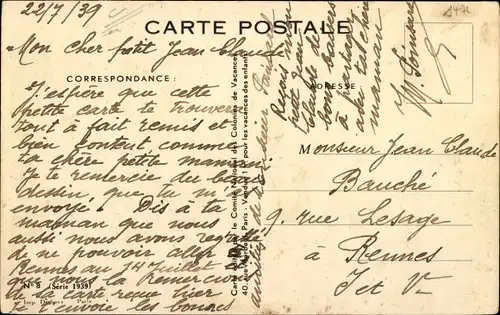 22/7/39
CARTE POSTALE
Mon cher petit Jean Claude
CORRESPONDANCE :
J'espère que cette
petite carte te trouvera
tout à fait remis et
bien content comme
ta chère petite maman
Je te remercie du beau
dessin que tu m'
envoyé. Dis à ta
maman que nous
aussi nous avons
de ne pouvoir aller
Rennes au 14 Juillet
que nous la
de sa carte reçue hier
je t'envoie les bonnes
N° 8 (Série 1939)
Imp. Paris
amitiés de
le Comité National des Colonies de Vacances
40, rue Paris - Vendue 1 fr. pour les vacances des enfants
Reçois mon
petit Jean
Claude de
bons baisers
à partager
avec ta chère
maman
ADRESSE
Monsieur Jean Claude
Bauché
9. rue Lesage
à Rennes
I et V